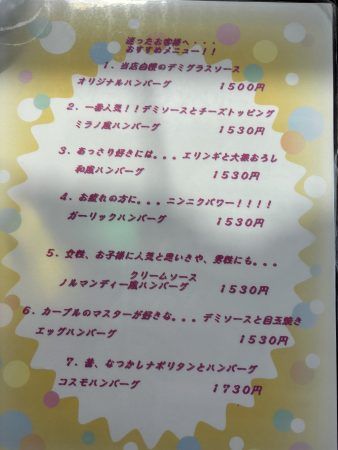 迷ったお客様へ・・・
おすすめメニュー！！
1．当店自慢のデミグラスソース
オリジナルハンバーグ 1500円
2．一番人気！！デミソースとチーズトッピング
ミラノ風ハンバーグ 1530円
3．あっさり好きには。。。エリンギと大根おろし
和風ハンバーグ 1530円
4．お疲れの方に。。。ニンニクパワー！！！！
ガーリックハンバーグ 1530円
5．女性、お子様に人気と思いきや、男性にも。。。
クリームソース
ノルマンディー風ハンバーグ 1530円
6．カーブルのマスターが好きな。。。デミソースと目玉焼き
エッグハンバーグ 1530円
7．昔、なつかしナポリタンとハンバーグ
コスモハンバーグ 1730円